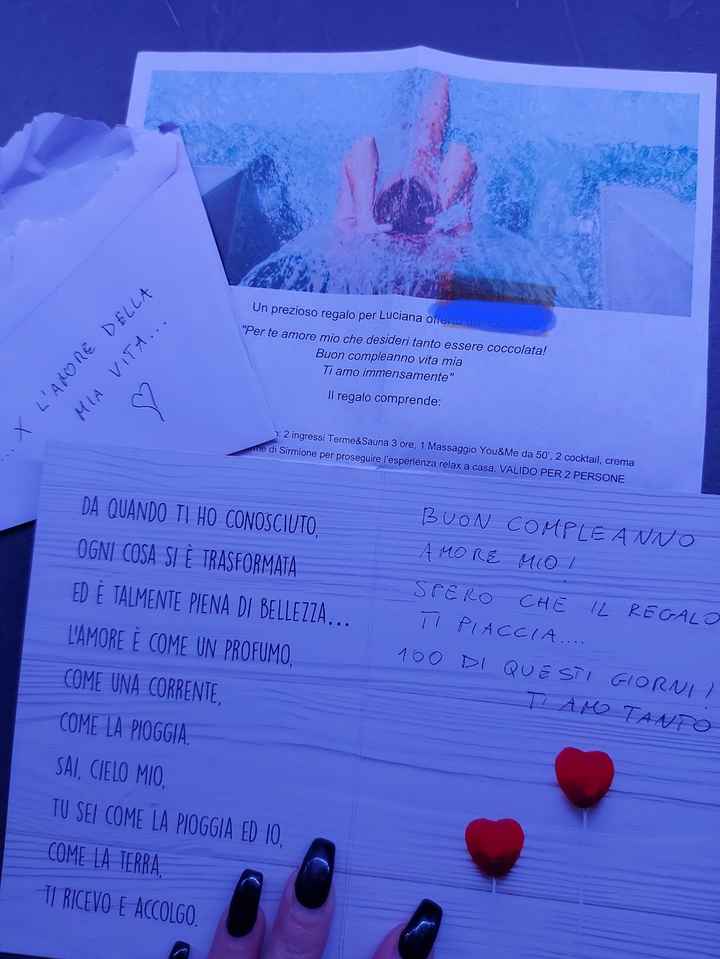 Un prezioso regalo per Luciana
"Per te amore mio che desideri tanto essere coccolata!
Buon compleanno vita mia
Ti amo immensamente"
Il regalo comprende:
2 ingressi Terme&Sauna 3 ore, 1 Massaggio You&Me da 50', 2 cocktail, crema
di Sirmione per proseguire l'esperienza relax a casa. VALIDO PER 2 PERSONE
... X L'AMORE DELLA
MIA VITA...
DA QUANDO TI HO CONOSCIUTO,
OGNI COSA SI È TRASFORMATA
ED È TALMENTE PIENA DI BELLEZZA...
L'AMORE È COME UN PROFUMO,
COME UNA CORRENTE,
COME LA PIOGGIA.
SAI, CIELO MIO,
TU SEI COME LA PIOGGIA ED IO,
COME LA TERRA,
TI RICEVO E ACCOLGO.
BUON COMPLEANNO
AMORE MIO!
SPERO CHE IL REGALO
TI PIACCIA....
100 DI QUESTI GIORNI!
TI AMO TANTO